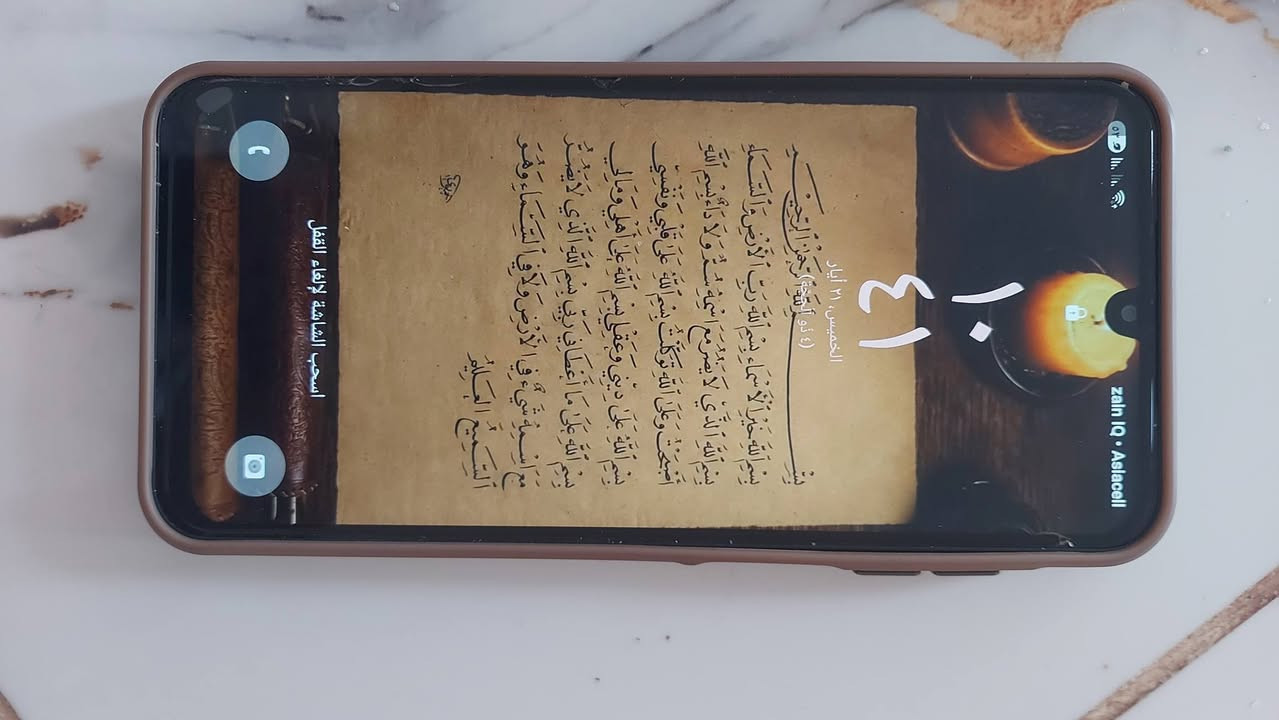 zain IQ • Asiacell
١٠
٤١
الخميس، ٢١ أيار
(٤ ذو الحجة)
بِسْمِ اللهِ الرَّحْمٰنِ الرَّحِيمِ
بِسْمِ اللهِ خَيْرِ الْأَسْمَاءِ بِسْمِ اللهِ رَبِّ الْأَرْضِ وَالسَّمَاءِ
بِسْمِ اللهِ الَّذِي لَا يَضُرُّ مَعَ اسْمِهِ سَمٌّ وَلَا دَاءٌ بِسْمِ اللهِ
أَصْبَحْتُ وَعَلَى اللهِ تَوَكَّلْتُ بِسْمِ اللهِ عَلَى قَلْبِي وَنَفْسِي
بِسْمِ اللهِ عَلَى دِينِي وَعَقْلِي بِسْمِ اللهِ عَلَى أَهْلِي وَمَالِي
بِسْمِ اللهِ عَلَى مَا أَعْطَانِي رَبِّي بِسْمِ اللهِ الَّذِي لَا يَضُرُّ
مَعَ اسْمِهِ شَيْءٌ فِي الْأَرْضِ وَلَا فِي السَّمَاءِ وَهُوَ
السَّمِيعُ الْعَلِيمُ
اسحب الشاشة لإلغاء القفل